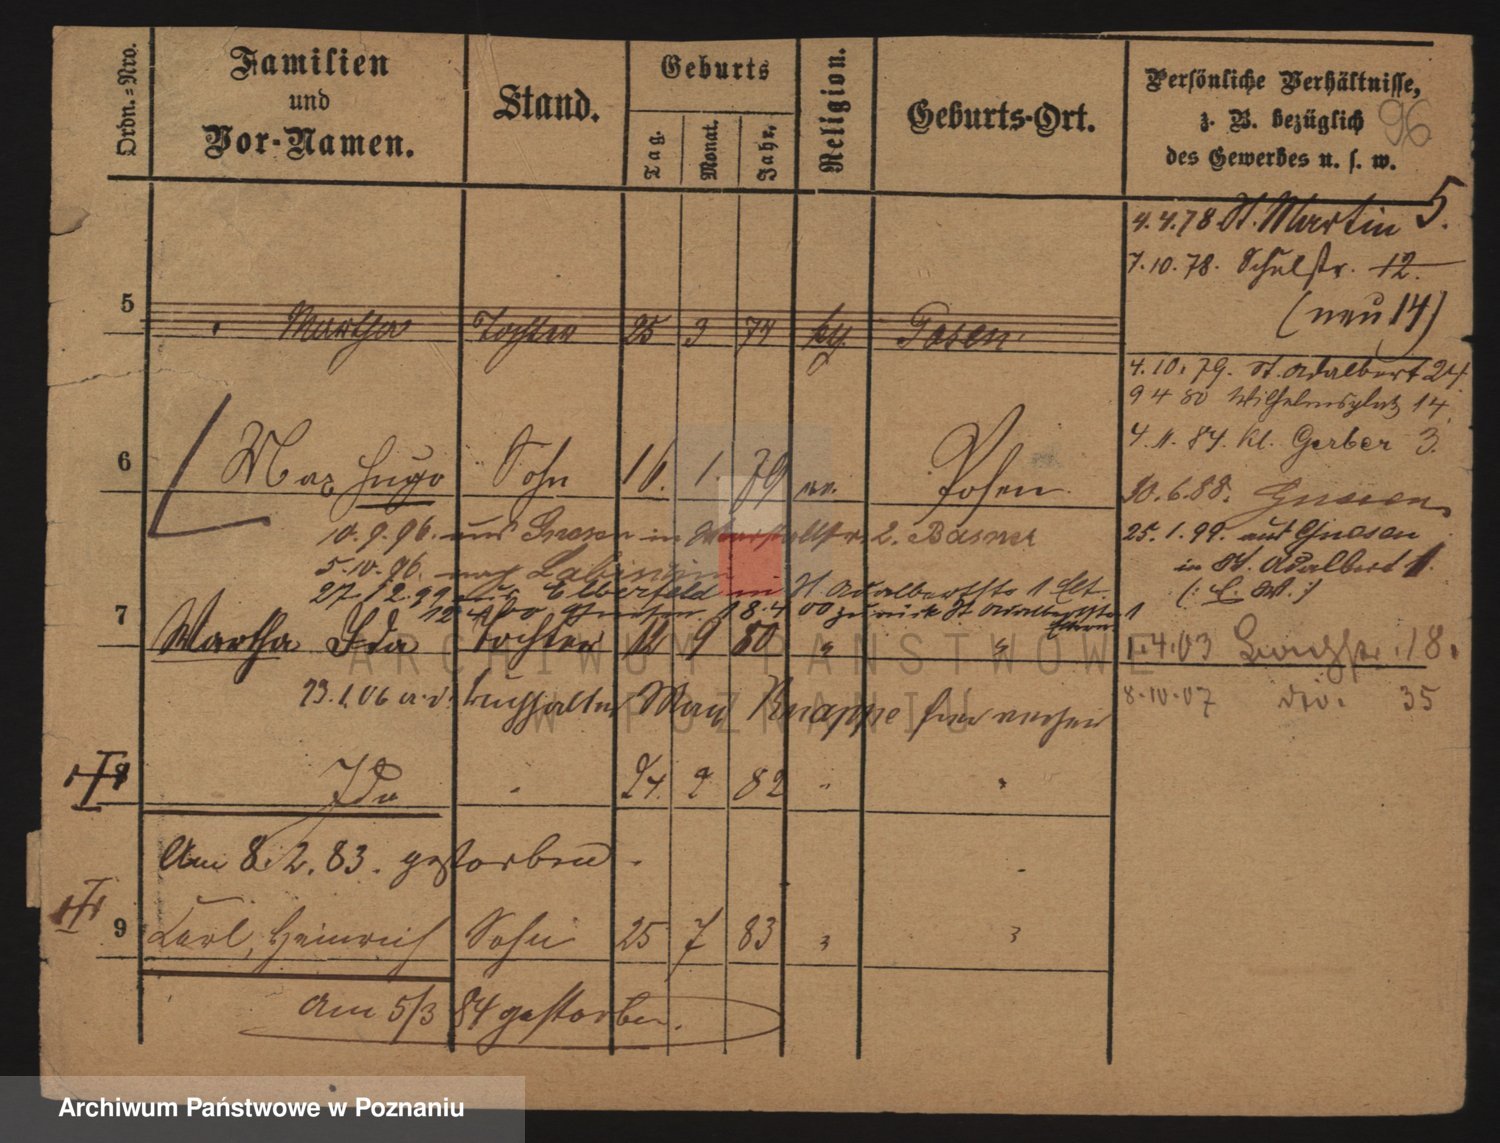 Ordn.-Nro.
Familien
und
Vor-Namen.
Stand.
Geburts
Tag.
Monat.
Jahr.
Religion.
Geburts-Ort.
Persönliche Verhältnisse,
z. B. bezüglich
des Gewerbes u. s. w.
96
4.4.78 St. Martin 5.
7.10.78. Schulstr. 12.
(neu 14)
5 Martha Tochter 25 3 74 Posen
4.10.79. St. Adalbert 24
9 4 80 Wilhelmsplatz 14
4.11.84. Kl. Gerber 3.
6 Max Hugo Sohn 16. 1 79 Posen
30.6.88. Gnesen
10.9.96. aus Gnesen in 2. Basner
25.1.99. aus Gnesen
in St. Adalbert 1.
5.10.96. nach
27/2.99 aus Elberfeld in St Adalbertstr 1
18.4 00 zurück St. Adalbertstr 1
7 Martha Ida Tochter 12 9 80 "
1.4.03 18.
23.1.06 a. d. Buchhalter Max Knappe hier
8.10.07 35
8 Ida " 24. 9 82 " "
Am 8.2.83. gestorben.
9 Karl, Heinrich Sohn 25 7 83 " "
Am 5/3 84 gestorben.
ARCHIWUM PAŃSTWOWE
W POZNANIU
Archiwum Państwowe w Poznaniu